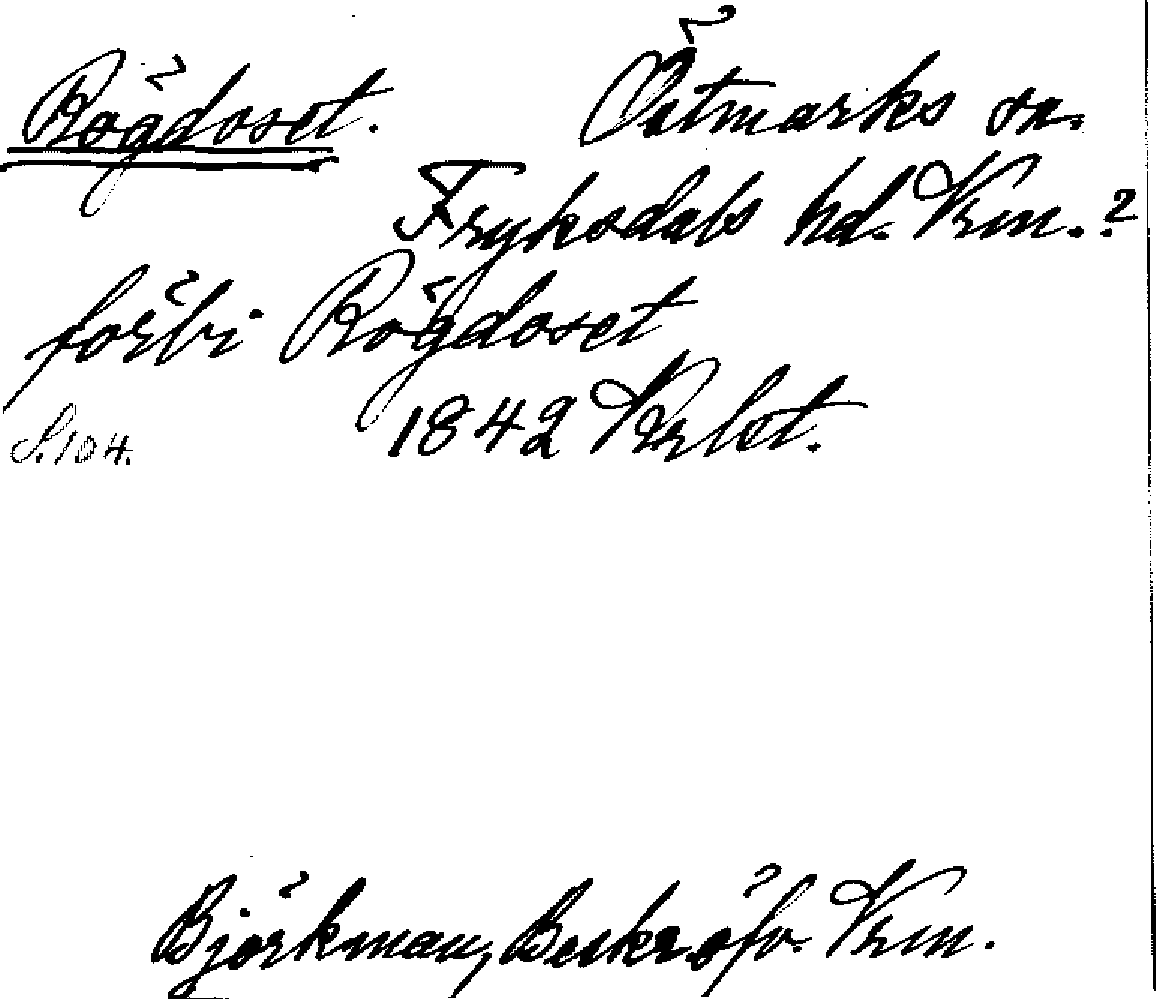 Rögdoset. Östmarks sn.
Fryksdals hd. Vrm.?
förbi Rögdoset
S. 104. 1842
Björkman, Beskr. öfv. Vrm.